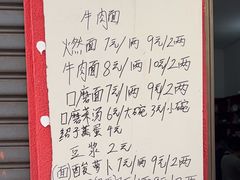 牛肉面
燃面 7元/1两 9元/2两
牛肉面 8元/1两 10元/2两
口蘑面 7元/1两 9元/2两
口蘑菜汤 6元/大碗 3元/小碗
蛋 4元
豆浆 2元
(面) 酸萝卜 7元/1两 9元/2两